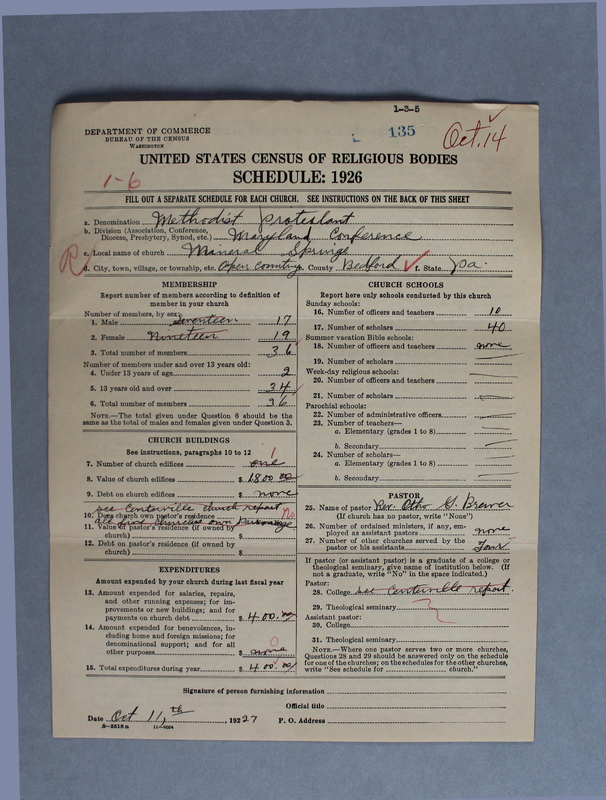 1-3-5
135
Oct. 14
DEPARTMENT OF COMMERCE
BUREAU OF THE CENSUS
WASHINGTON
UNITED STATES CENSUS OF RELIGIOUS BODIES
1-6
SCHEDULE: 1926
FILL OUT A SEPARATE SCHEDULE FOR EACH CHURCH. SEE INSTRUCTIONS ON THE BACK OF THIS SHEET
a. Denomination Methodist Protestant
b. Division (Association, Conference,
Diocese, Presbytery, Synod, etc.) Maryland Conference
c. Local name of church Mineral Springs
d. City, town, village, or township, etc. Open country e. County Bedford f. State Pa.
MEMBERSHIP
Report number of members according to definition of
member in your church
Number of members, by sex:
1. Male Seventeen 17
2. Female Nineteen 19
3. Total number of members 36
Number of members under and over 13 years old:
4. Under 13 years of age 2
5. 13 years old and over 34
6. Total number of members 36
NOTE.—The total given under Question 6 should be
the same as the total of males and females given under Question 3.
CHURCH BUILDINGS
See instructions, paragraphs 10 to 12
7. Number of church edifices one 1
8. Value of church edifices $ 1800.00
9. Debt on church edifices $ none
see Centerville church report
10. Does church own pastor's residence No
all five churches own Parsonage
11. Value of pastor's residence (if owned by
church) $
12. Debt on pastor's residence (if owned by
church) $
EXPENDITURES
Amount expended by your church during last fiscal year
13. Amount expended for salaries, repairs,
and other running expenses; for im-
provements or new buildings; and for
payments on church debt $ 400.00
14. Amount expended for benevolences, in-
cluding home and foreign missions; for
denominational support; and for all
other purposes $ none 0
15. Total expenditures during year $ 400.00
CHURCH SCHOOLS
Report here only schools conducted by this church
Sunday schools:
16. Number of officers and teachers 10
17. Number of scholars 40
Summer vacation Bible schools:
18. Number of officers and teachers none
19. Number of scholars
Week-day religious schools:
20. Number of officers and teachers
21. Number of scholars
Parochial schools:
22. Number of administrative officers
23. Number of teachers—
a. Elementary (grades 1 to 8)
b. Secondary
24. Number of scholars—
a. Elementary (grades 1 to 8)
b. Secondary
PASTOR
25. Name of pastor Rev. Otho G. Brewer
(If church has no pastor, write "None")
26. Number of ordained ministers, if any, em-
ployed as assistant pastors none
27. Number of other churches served by the
pastor or his assistants Four
If pastor (or assistant pastor) is a graduate of a college or
theological seminary, give name of institution below. (If
not a graduate, write "No" in the space indicated.)
Pastor:
28. College see Centerville report.
29. Theological seminary
Assistant pastor:
30. College
31. Theological seminary
NOTE.—Where one pastor serves two or more churches,
Questions 28 and 29 should be answered only on the schedule
for one of the churches; on the schedules for the other churches,
write "See schedule for church."
Signature of person furnishing information
Official title
Date Oct 11,th , 19227 P. O. Address
8-5518 a 11-9024